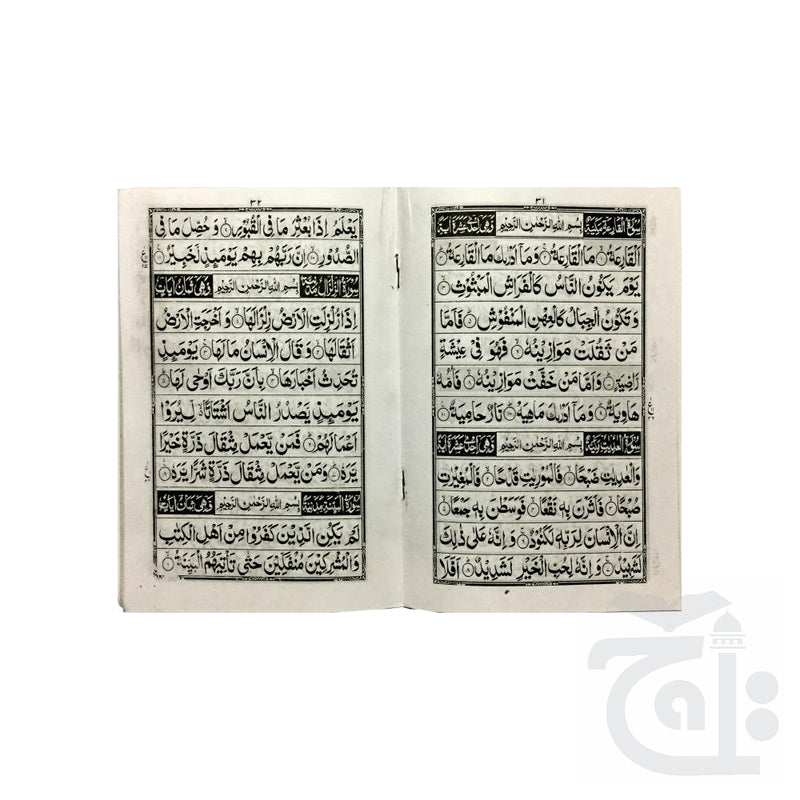 ٣١
سورة القارعة مكية بسم الله الرحمن الرحيم وهى احدى عشرة اية
اَلْقَارِعَةُ ۙ مَا الْقَارِعَةُ ۚ وَمَآ اَدْرٰىكَ مَا الْقَارِعَةُ ؕ
يَوْمَ يَكُوْنُ النَّاسُ كَالْفَرَاشِ الْمَبْثُوْثِ ۙ
وَتَكُوْنُ الْجِبَالُ كَالْعِهْنِ الْمَنْفُوْشِ ؕ فَاَمَّا
مَنْ ثَقُلَتْ مَوَازِيْنُهٗ ۙ فَهُوَ فِيْ عِيْشَةٍ
رَّاضِيَةٍ ؕ وَاَمَّا مَنْ خَفَّتْ مَوَازِيْنُهٗ ۙ فَاُمُّهٗ
هَاوِيَةٌ ؕ وَمَآ اَدْرٰىكَ مَاهِيَهْ ؕ نَارٌ حَامِيَةٌ
سورة العديت مكية بسم الله الرحمن الرحيم وهى احدى عشرة اية
وَالْعٰدِيٰتِ ضَبْحًا ۙ فَالْمُوْرِيٰتِ قَدْحًا ۙ فَالْمُغِيْرٰتِ
صُبْحًا ۙ فَاَثَرْنَ بِهٖ نَقْعًا ۙ فَوَسَطْنَ بِهٖ جَمْعًا ۙ
اِنَّ الْاِنْسَانَ لِرَبِّهٖ لَكَنُوْدٌ ۚ وَاِنَّهٗ عَلٰى ذٰلِكَ
لَشَهِيْدٌ ۚ وَاِنَّهٗ لِحُبِّ الْخَيْرِ لَشَدِيْدٌ ؕ اَفَلَا
٣٢
يَعْلَمُ اِذَا بُعْثِرَ مَا فِي الْقُبُوْرِ ۙ وَحُصِّلَ مَا فِي
الصُّدُوْرِ ۙ اِنَّ رَبَّهُمْ بِهِمْ يَوْمَئِذٍ لَّخَبِيْرٌ
سورة الزلزال مدنية بسم الله الرحمن الرحيم وهى ثمان ايات
اِذَا زُلْزِلَتِ الْاَرْضُ زِلْزَالَهَا ۙ وَاَخْرَجَتِ الْاَرْضُ
اَثْقَالَهَا ۙ وَقَالَ الْاِنْسَانُ مَا لَهَا ۚ يَوْمَئِذٍ
تُحَدِّثُ اَخْبَارَهَا ۙ بِاَنَّ رَبَّكَ اَوْحٰى لَهَا ؕ
يَوْمَئِذٍ يَّصْدُرُ النَّاسُ اَشْتَاتًا ۙ لِّيُرَوْا
اَعْمَالَهُمْ ؕ فَمَنْ يَّعْمَلْ مِثْقَالَ ذَرَّةٍ خَيْرًا
يَّرَهٗ ؕ وَمَنْ يَّعْمَلْ مِثْقَالَ ذَرَّةٍ شَرًّا يَّرَهٗ
سورة البينة مدنية بسم الله الرحمن الرحيم وهى ثمان ايات
لَمْ يَكُنِ الَّذِيْنَ كَفَرُوْا مِنْ اَهْلِ الْكِتٰبِ
وَالْمُشْرِكِيْنَ مُنْفَكِّيْنَ حَتّٰى تَاْتِيَهُمُ الْبَيِّنَةُ ۙ